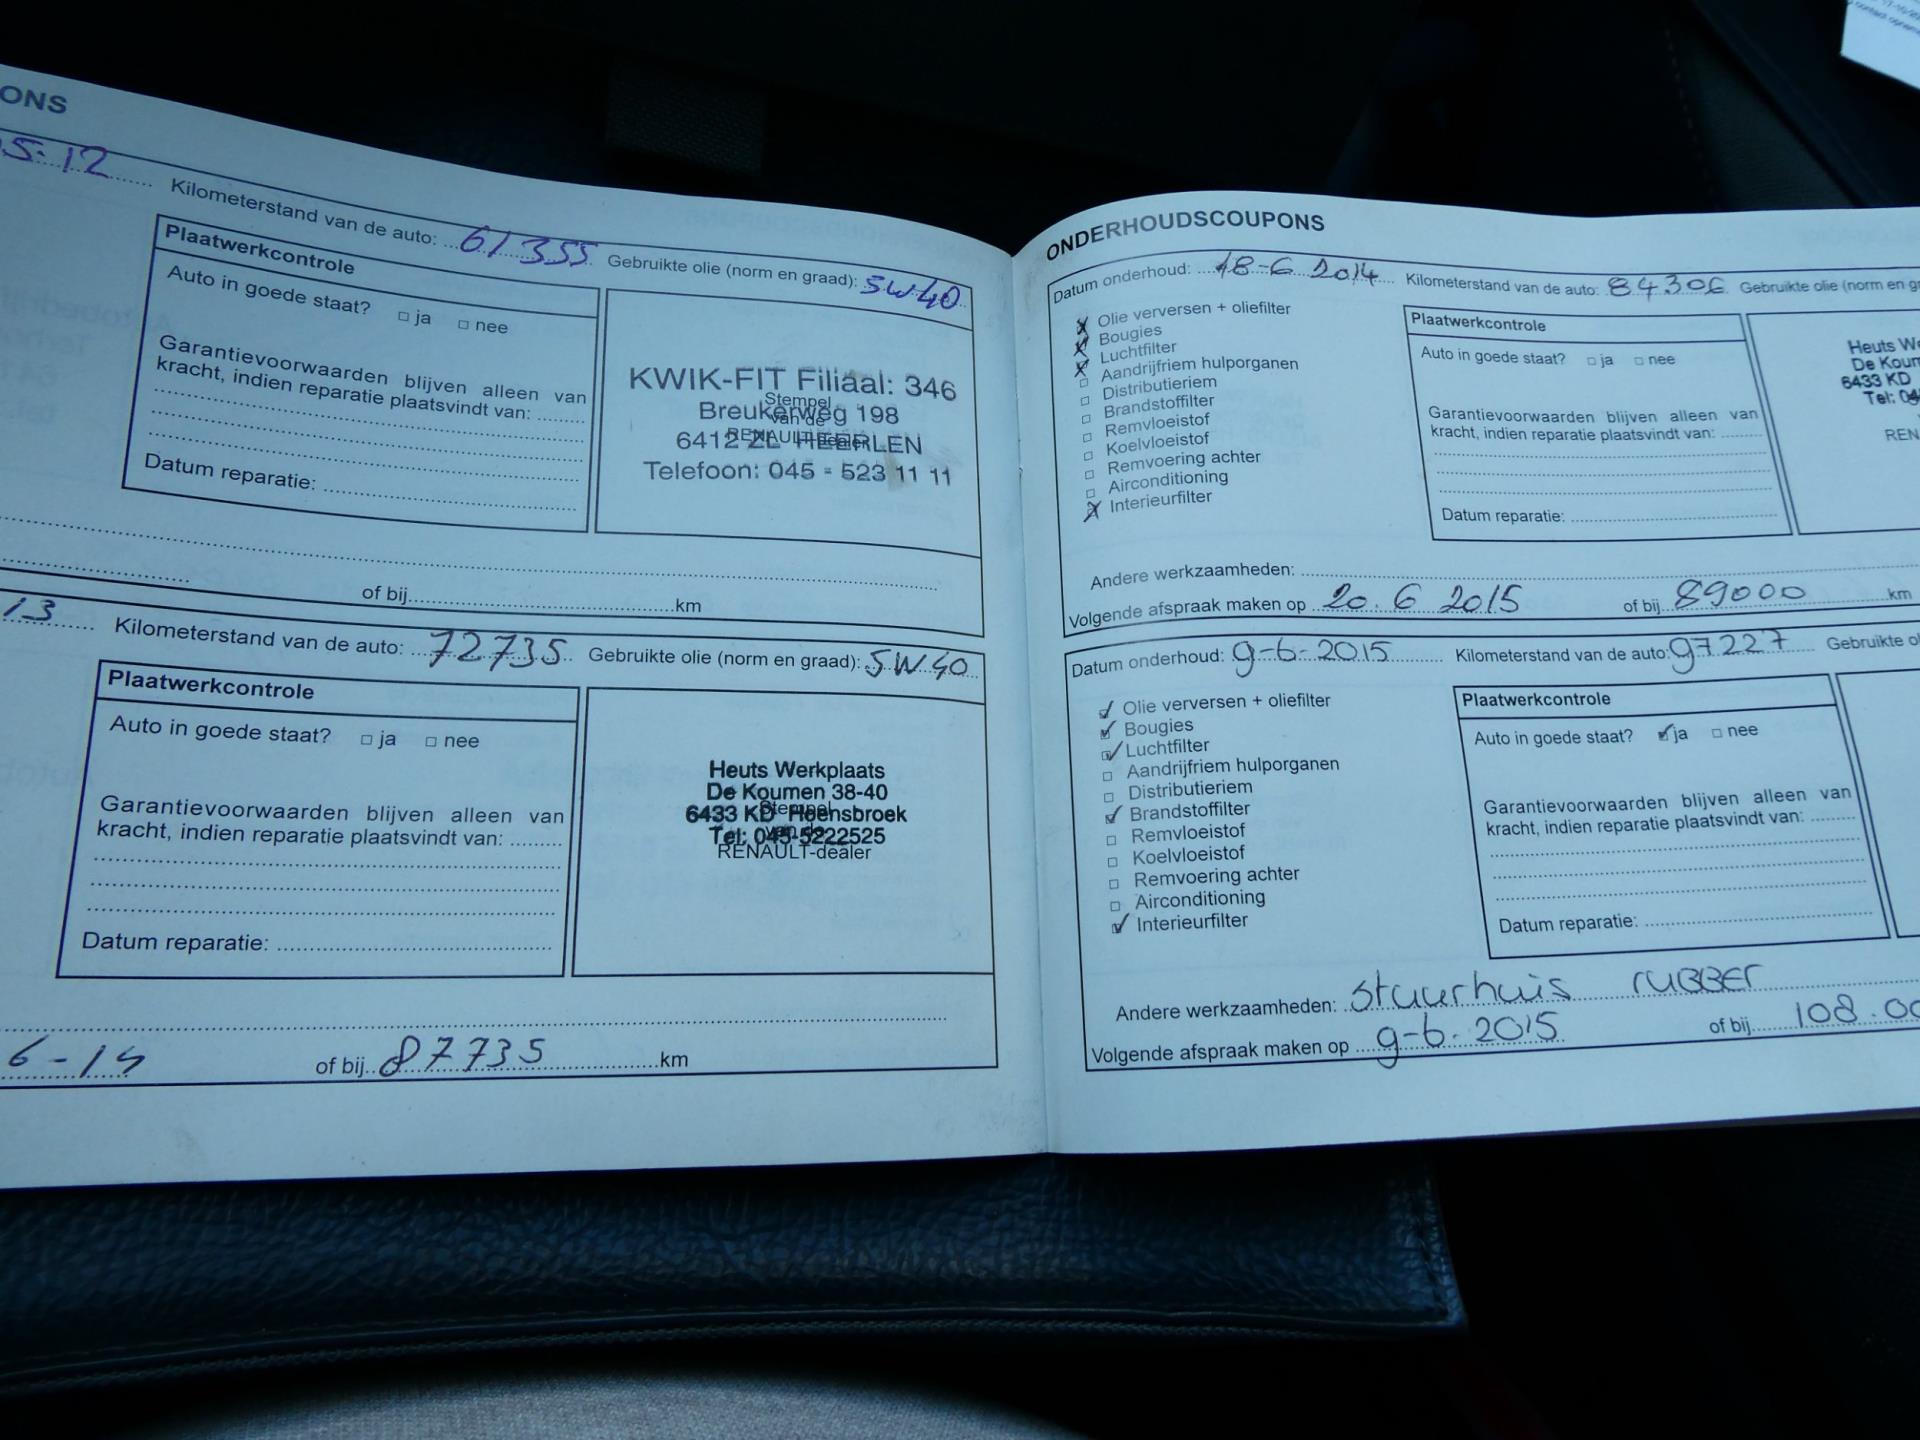 ONS
5-12 Kilometerstand van de auto: 61355 Gebruikte olie (norm en graad): 5W40
Plaatwerkcontrole
Auto in goede staat? □ ja □ nee
Garantievoorwaarden blijven alleen van
kracht, indien reparatie plaatsvindt van:
Datum reparatie:
KWIK-FIT Filiaal: 346
Stempel
Breukerweg 198
van de
6412 ZL HEERLEN
RENAULT-dealer
Telefoon: 045 - 523 11 11
of bij km
13 Kilometerstand van de auto: 72735 Gebruikte olie (norm en graad): 5W40
Plaatwerkcontrole
Auto in goede staat? □ ja □ nee
Garantievoorwaarden blijven alleen van
kracht, indien reparatie plaatsvindt van:
Datum reparatie:
Heuts Werkplaats
De Koumen 38-40
Stempel
6433 KD Hoensbroek
van de
Tel: 045-5222525
RENAULT-dealer
6-14 of bij 87735 km
ONDERHOUDSCOUPONS
Datum onderhoud: 18-6 2014 Kilometerstand van de auto: 84306 Gebruikte olie (norm en gr
Olie verversen + oliefilter
Bougies
Luchtfilter
Aandrijfriem hulporganen
Distributieriem
Brandstoffilter
Remvloeistof
Koelvloeistof
Remvoering achter
Airconditioning
Interieurfilter
Plaatwerkcontrole
Auto in goede staat? □ ja □ nee
Garantievoorwaarden blijven alleen van
kracht, indien reparatie plaatsvindt van:
Datum reparatie:
Heuts We
De Koum
6433 KD
Tel: 04
REN
Andere werkzaamheden:
Volgende afspraak maken op 20.6 2015 of bij 89000 km
Datum onderhoud: 9-6-2015 Kilometerstand van de auto: 97227 Gebruikte ol
Olie verversen + oliefilter
Bougies
Luchtfilter
Aandrijfriem hulporganen
Distributieriem
Brandstoffilter
Remvloeistof
Koelvloeistof
Remvoering achter
Airconditioning
Interieurfilter
Plaatwerkcontrole
Auto in goede staat? ja □ nee
Garantievoorwaarden blijven alleen van
kracht, indien reparatie plaatsvindt van:
Datum reparatie:
Andere werkzaamheden: stuurhuis rubber
Volgende afspraak maken op 9-6-2015 of bij 108.00